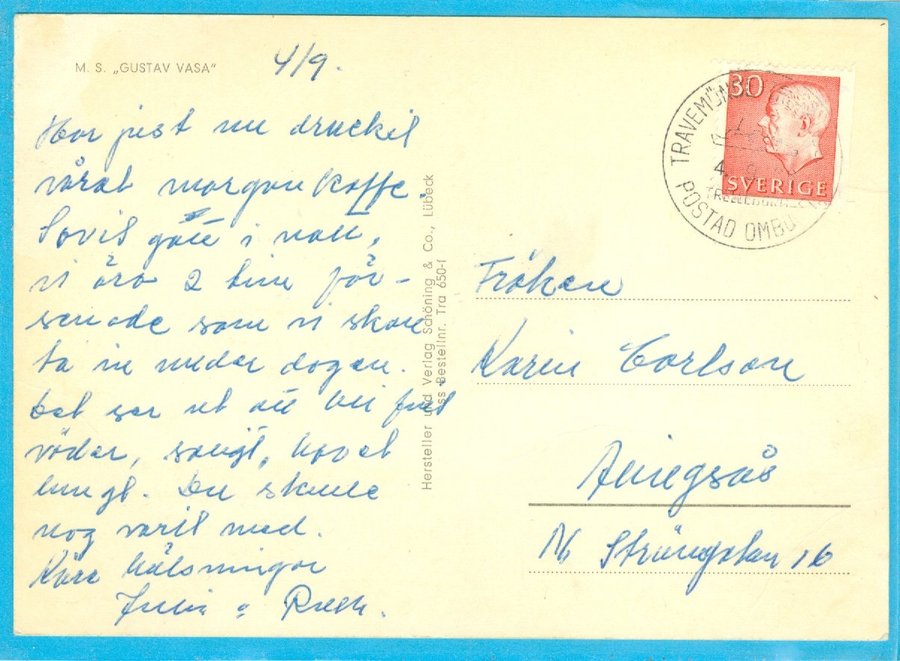 M. S. „GUSTAV VASA"
4/9.
Har just nu druckit
vårat morgonkaffe.
Sovit gott i natt,
vi äro 2 tim för-
senade som vi skall
ta in under dagen.
Det ser ut att bli fint
väder, soligt, havet
lungt. Du skulle
nog varit med.
Kära hälsningar
Julia o Ruth.
Hersteller und Verlag Schöning & Co., Lübeck
Bestellnr. Tra 650-f
30
SVERIGE
TRAVEMÜN
POSTAD OMBO
Fröken
Karin Carlson
Alingsås
N. Strängatan 16